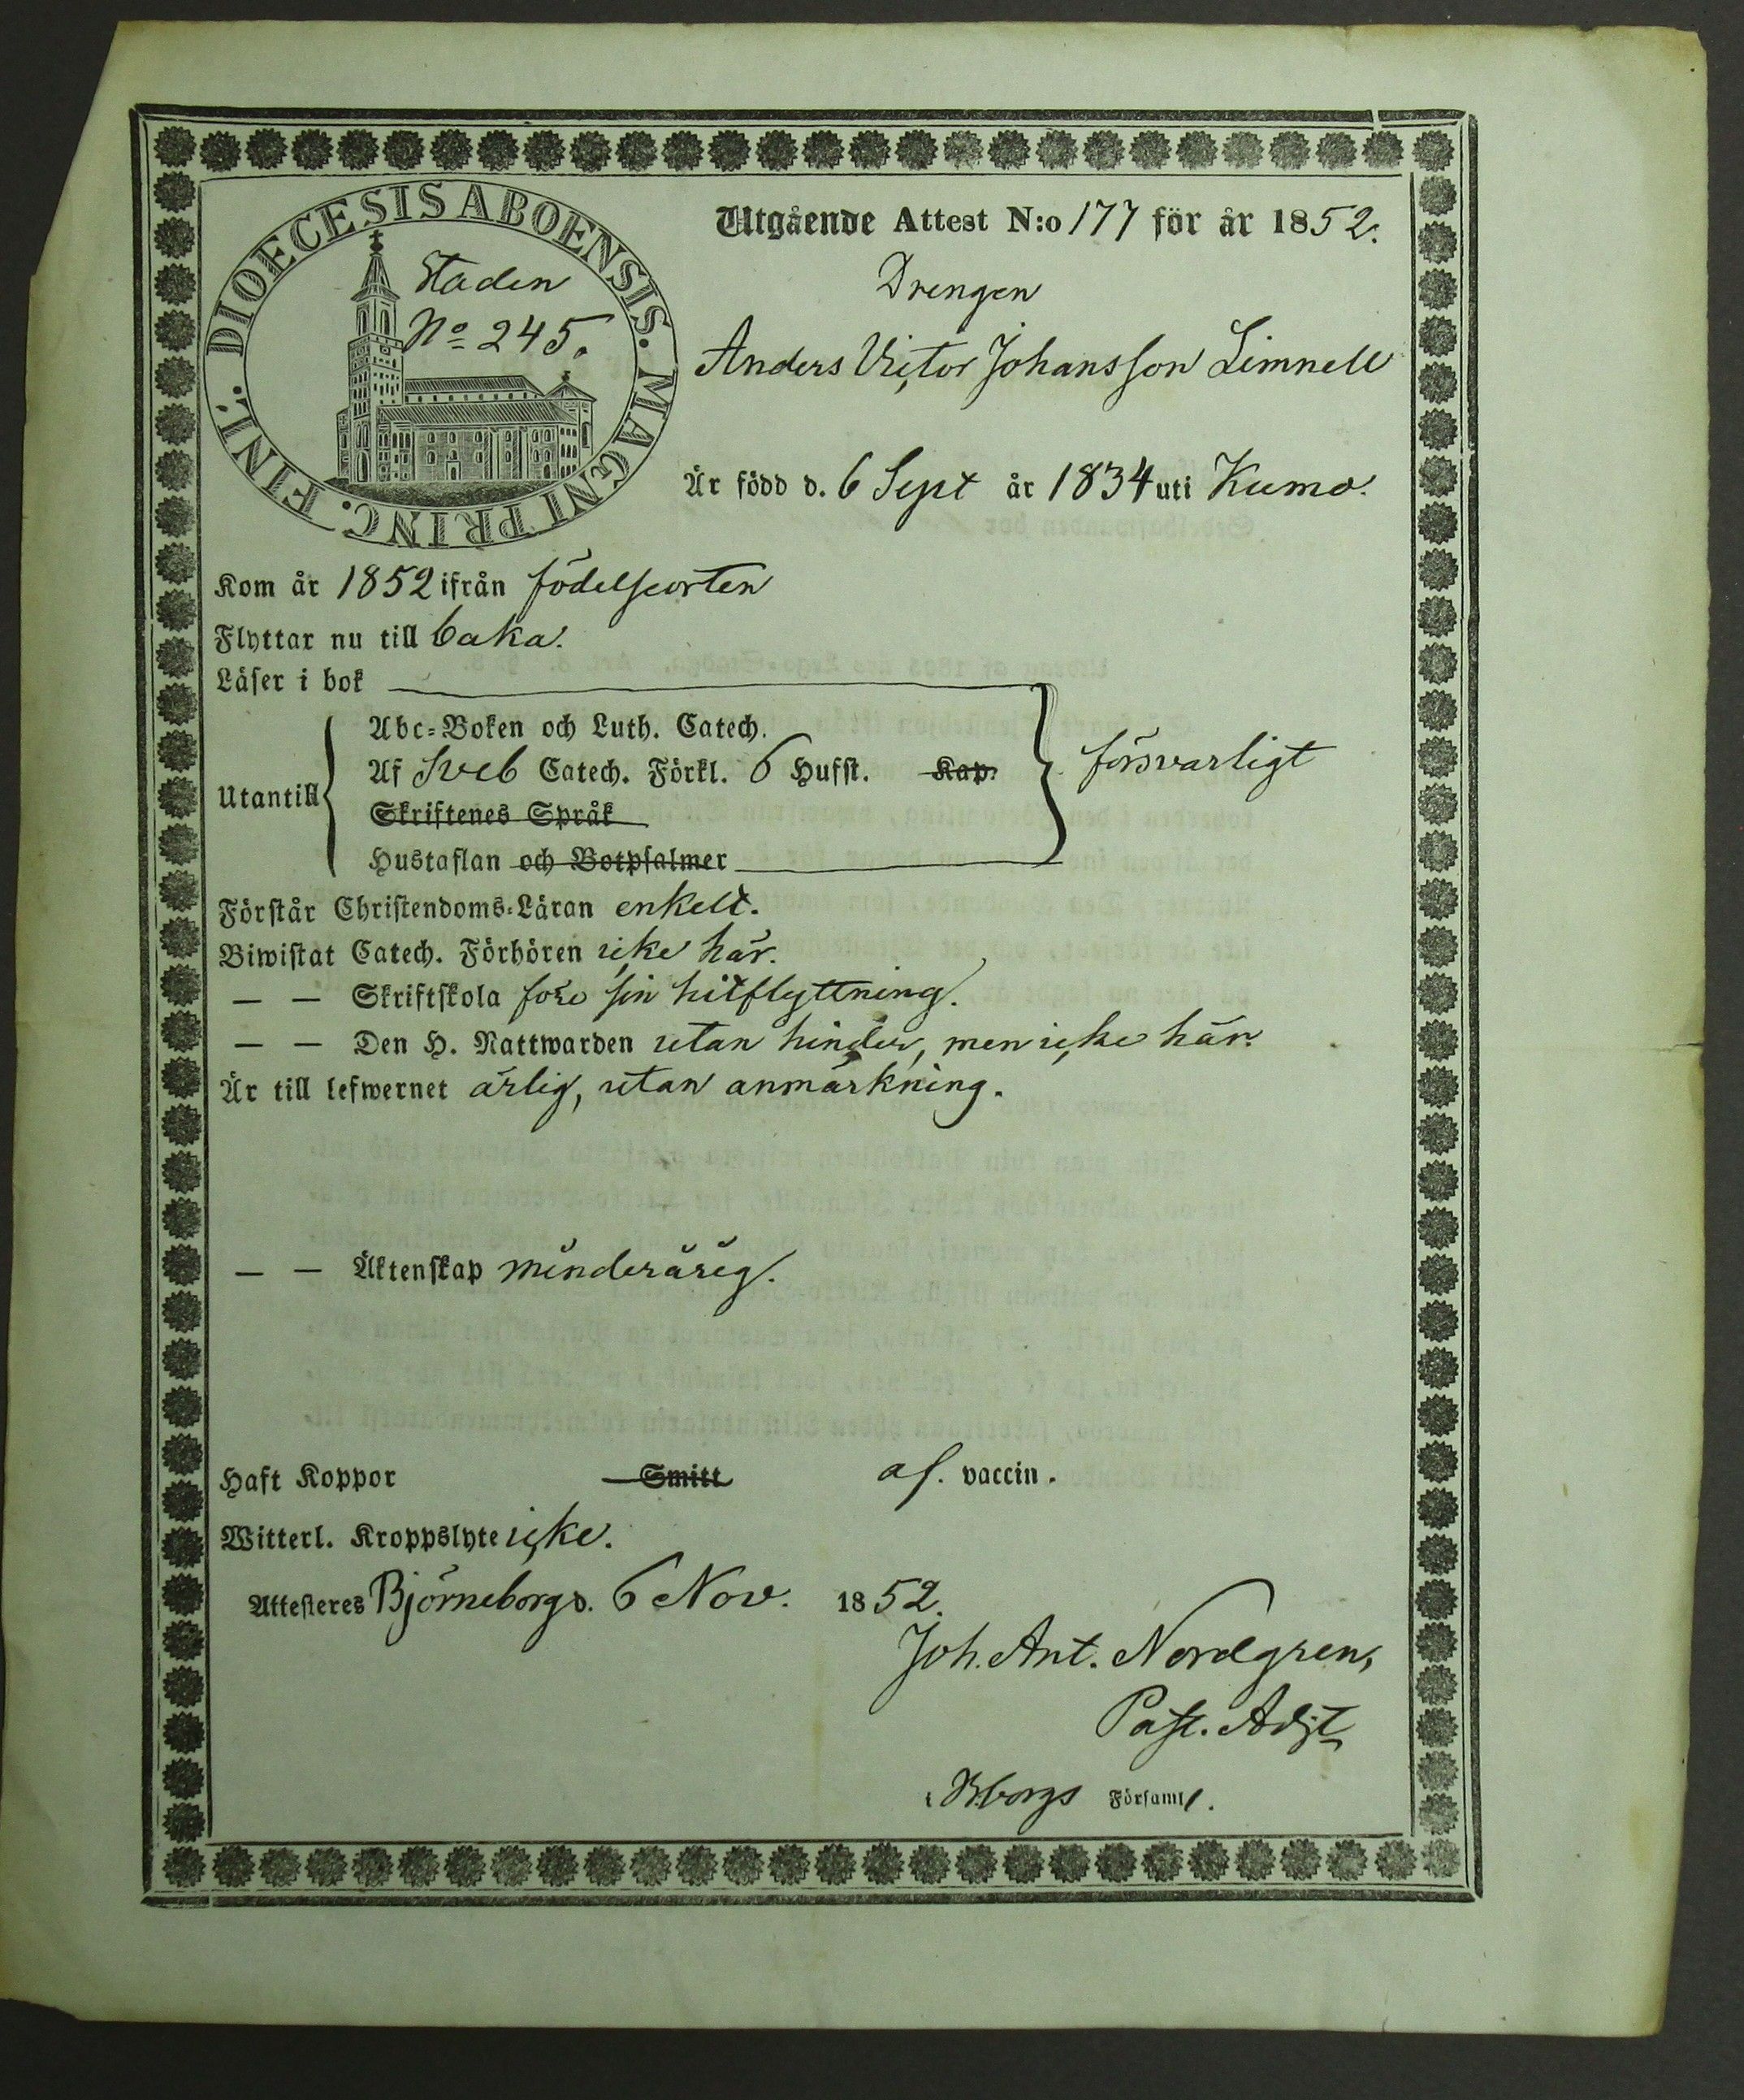 DIOECESIS ABOENSIS. MAGNI PRINC. FINL.
Staden
No 245.
Utgående Attest N:o 177 för år 1852.
Drengen
Anders Victor Johansson Limnell
Är född d. 6 Sept år 1834 uti Kumo.
Kom år 1852 ifrån födelseorten
Flyttar nu till baka.
Läser i bok
Abc-Boken och Luth. Catech.
Af Sveb Catech. Förkl. 6 Hufst. Kap. försvarligt
Utantill
Skriftenes Språk
Hustaflan och Botpsalmer
Förstår Christendoms-Läran enkelt.
Biwistat Catech. Förhören icke här.
— — Skriftskola före sin hitflyttning.
— — Den H. Nattwarden utan hinder, men icke här.
Är till lefwernet ärlig, utan anmärkning.
— — Äktenskap minderårig.
Haft Koppor Smitt af. vaccin.
Witterl. Kroppslyte icke.
Attesteres Björneborg d. 6 Nov. 1852.
Joh. Ant. Nordgren,
Past. Adjt
i Bborgs Församl.